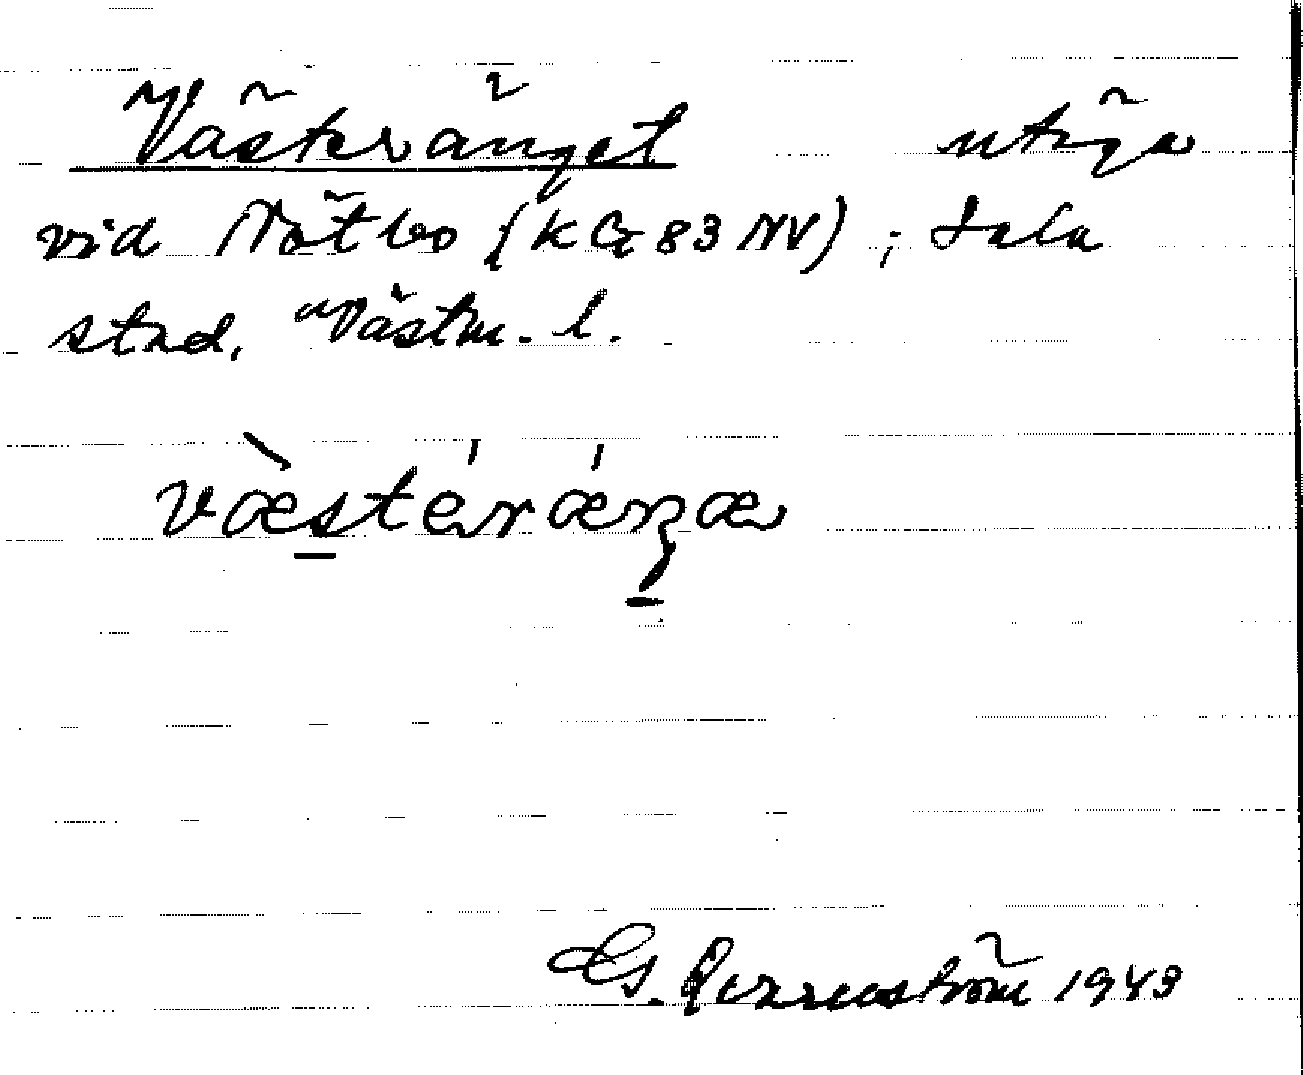 Västeränget utäga
vid Nötbo (k Bg 83 NV); Sala
stad, Västm. l.
væ̀stérǽŋæ
G. 1943